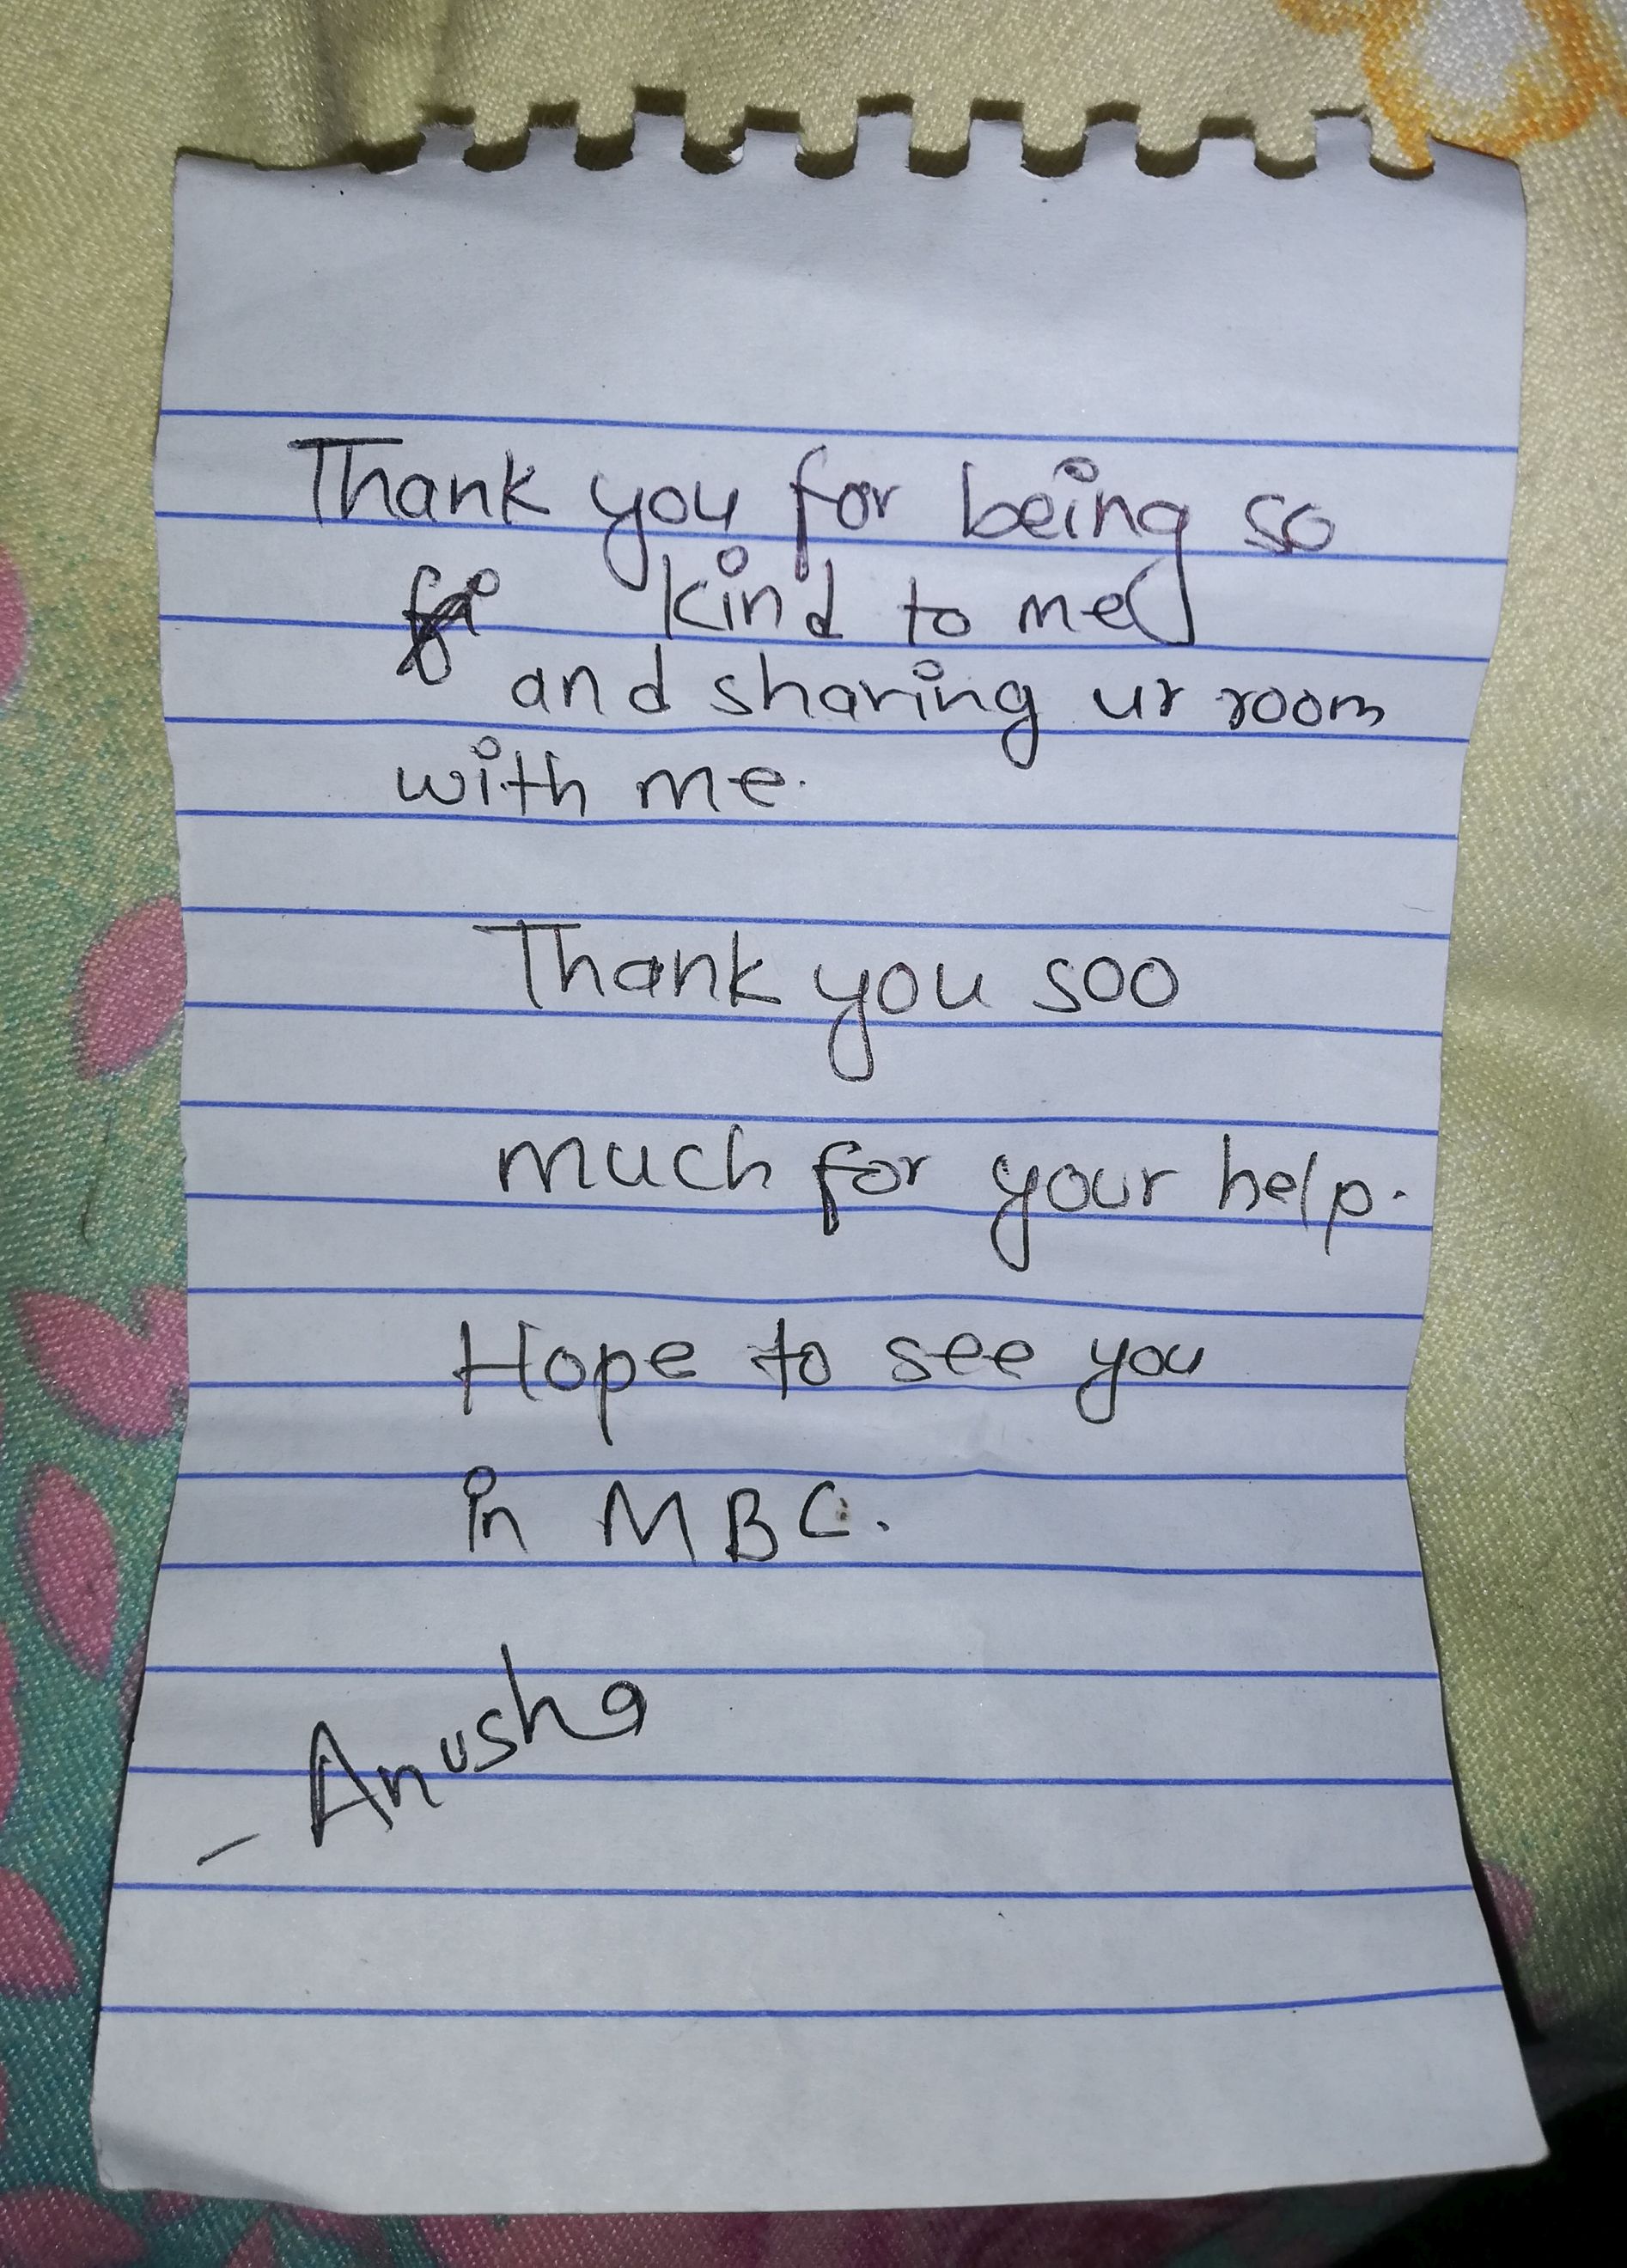 Thank you for being so
kind to me
and sharing ur room
with me.
Thank you soo
much for your help.
Hope to see you
in MBC.
- Anusha